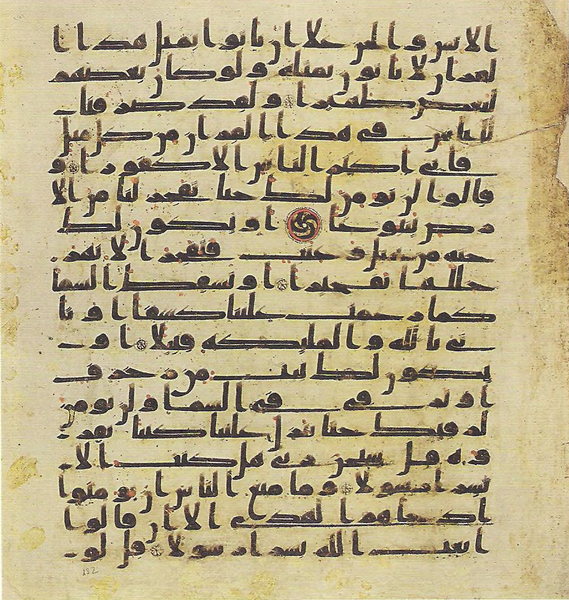 الانس والجن علا ان ياتوا بمثل هذا ا
لقران لا ياتون بمثله ولو كان بعضهم
لبعض ظهيرا ولقد صرفنا
للناس في هذا القران من كل مثل
فابى اكثر الناس الا كفورا و
قالوا لن نومن لك حتا تفجر لنا من الا
رض ينبوعا او تكون لك
جنه من نخيل وعنب فتفجر الانهر
خللها تفجيرا او تسقط السما
كما زعمت علينا كسفا او تا
تي بالله والمليكه قبيلا او
يكون لك بيت من زخرف
او ترقى في السما ولن نومن
لرقيك حتا تنزل علينا كتبا نقر
وه قل سبحن ربي هل كنت الا
بشرا رسولا وما منع الناس ان يومنوا
اذ جاهم الهدى الا ان قالوا
ابعث الله بشرا رسولا قل لو